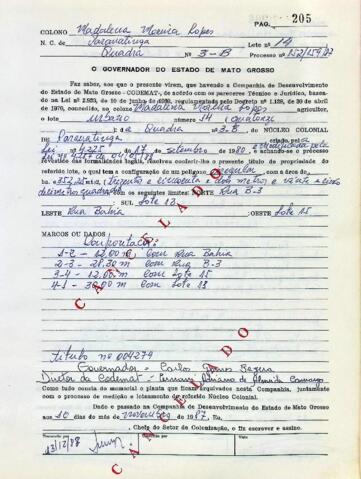 PÁG. 205
COLONO Madalena Moreira Lopes
N. C. de Paranatinga Lote nº 14
Quadra Nº 3-B Processo nº 152/159/87
O GOVERNADOR DO ESTADO DE MATO GROSSO
Faz saber, aos que o presente virem, que havendo a Companhia de Desenvolvimento
do Estado de Mato Grosso - CODEMAT, de acordo com os pareceres Técnico e Jurídico, baseada
na Lei nº 2.925, de 10 de junho de regulamentada pelo Decreto nº 1.138, de 30 de abril
de 1970, concedido, ao colono Madalena Moreira Lopes agricultor,
o lote urbano número 14 (quatorze)
a Quadra 3B. NÚCLEO COLONIAL
Paranatinga
Lei nº 4.225 de 17 de setembro de 1980 modificada pela
Lei nº
revestido das formalidades legais, resolveu conferir-lhe o presente título de propriedade
do referido lote, o qual tem a configuração de um polígono regular, com a área de
metro e vinte e
decímetros quadrados os seguintes limites: NORTE Rua B-3
SUL Lote 13
LESTE Rua Bahia OESTE Lote 15
MARCOS OU DADOS
Confrontação:
1-2 - 12.00 m com Rua Bahia
2-3 - 28.30 m com Rua B-3
3-4 - 12.00 m com Lote 15
4-1 - com Lote 13
CANCELADO
CANCELADO
título nº 004279
Governador - Carlos Bezerra
Diretor da Codemat - de Almeida
Como tudo consta do memorial e planta que ficam arquivados nesta Companhia, juntamente
com o processo de medição e loteamento do referido Núcleo Colonial.
Dado e passado na Companhia de Desenvolvimento do Estado de Mato Grosso
aos 10 dias do mês de novembro de 1987. Eu,
Chefe do Setor de Colonização, o fiz escrever e assino.